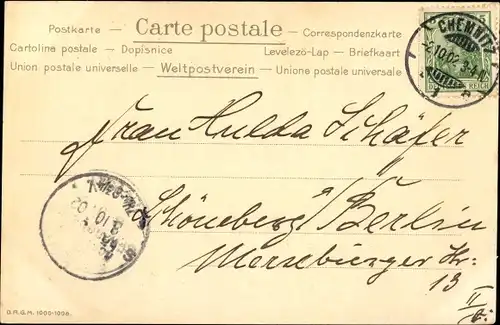 Postkarte — Carte postale — Correspondenzkarte
Cartolina postale — Dopisnice Levelező-Lap — Briefkaart
Union postale universelle — Weltpostverein — Unione postale universale
CHEMNITZ
2.10.02. 3-4.N.
REICH
Frau Hulda Schäfer
Schöneberg/Berlin
Merseburger Str.
13
II
3.10.02
D.R.G.M. 1005-1008.